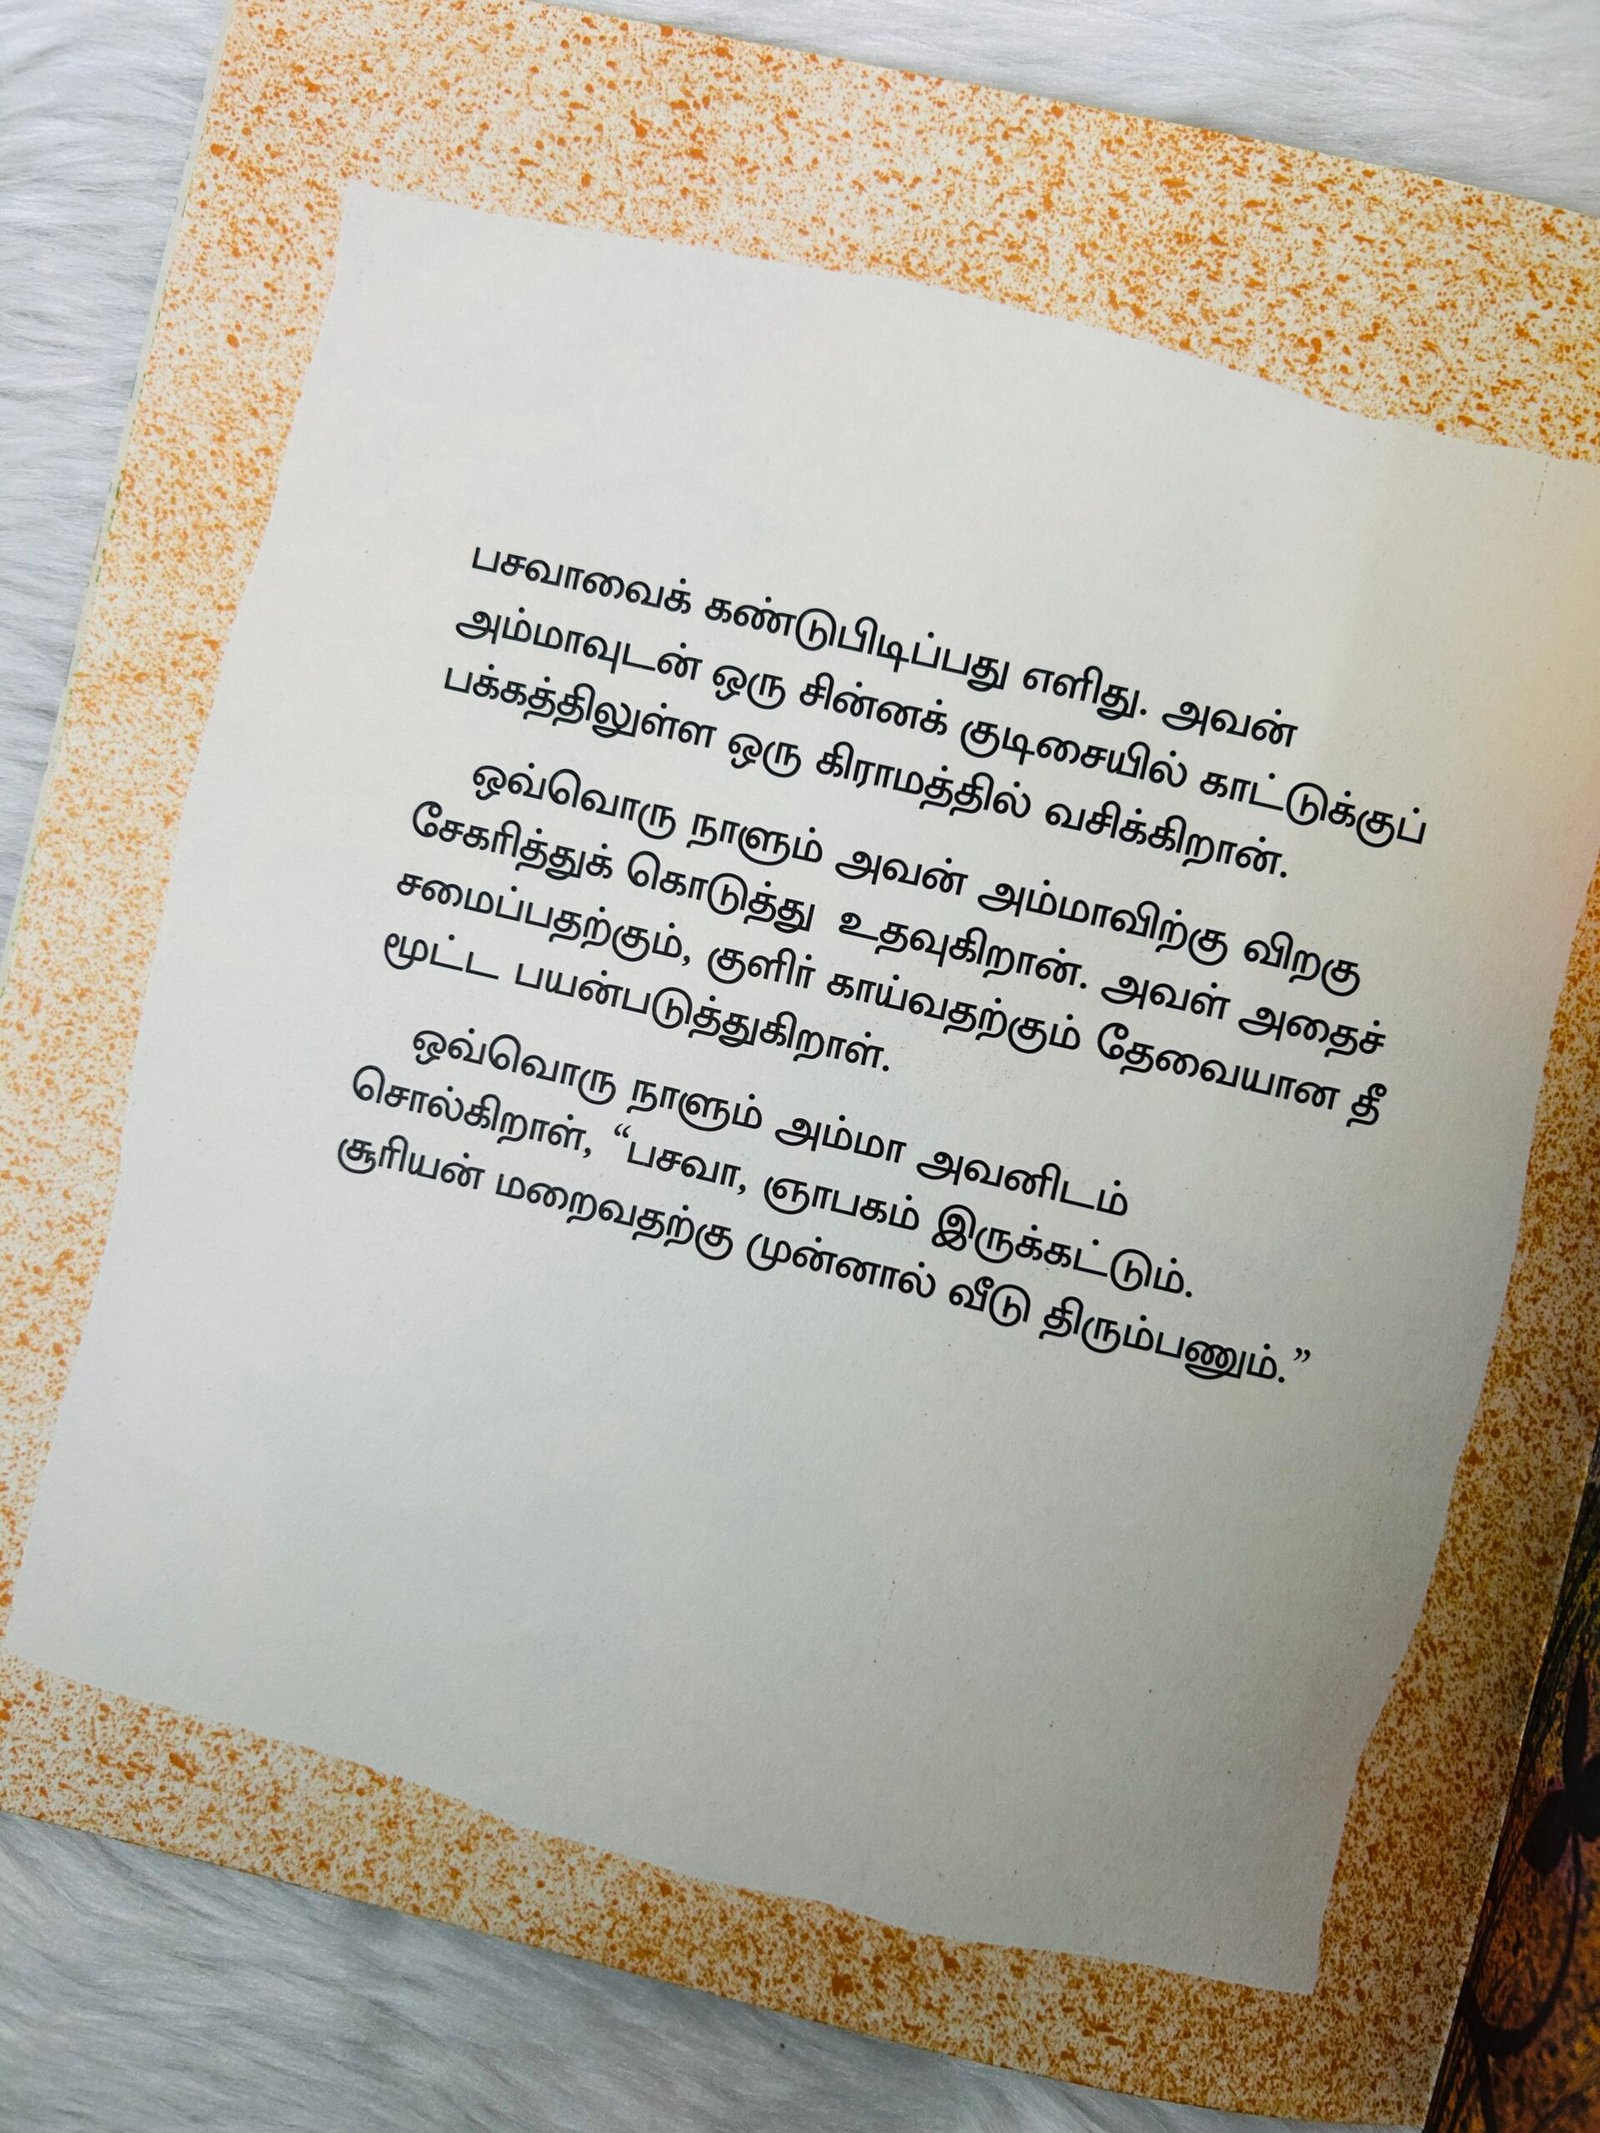 பசவாவைக் கண்டுபிடிப்பது எளிது. அவன்
அம்மாவுடன் ஒரு சின்னக் குடிசையில் காட்டுக்குப்
பக்கத்திலுள்ள ஒரு கிராமத்தில் வசிக்கிறான்.
ஒவ்வொரு நாளும் அவன் அம்மாவிற்கு விறகு
சேகரித்துக் கொடுத்து உதவுகிறான். அவள் அதைச்
சமைப்பதற்கும், குளிர் காய்வதற்கும் தேவையான தீ
மூட்ட பயன்படுத்துகிறாள்.
ஒவ்வொரு நாளும் அம்மா அவனிடம்
சொல்கிறாள், “பசவா, ஞாபகம் இருக்கட்டும்.
சூரியன் மறைவதற்கு முன்னால் வீடு திரும்பணும்.”